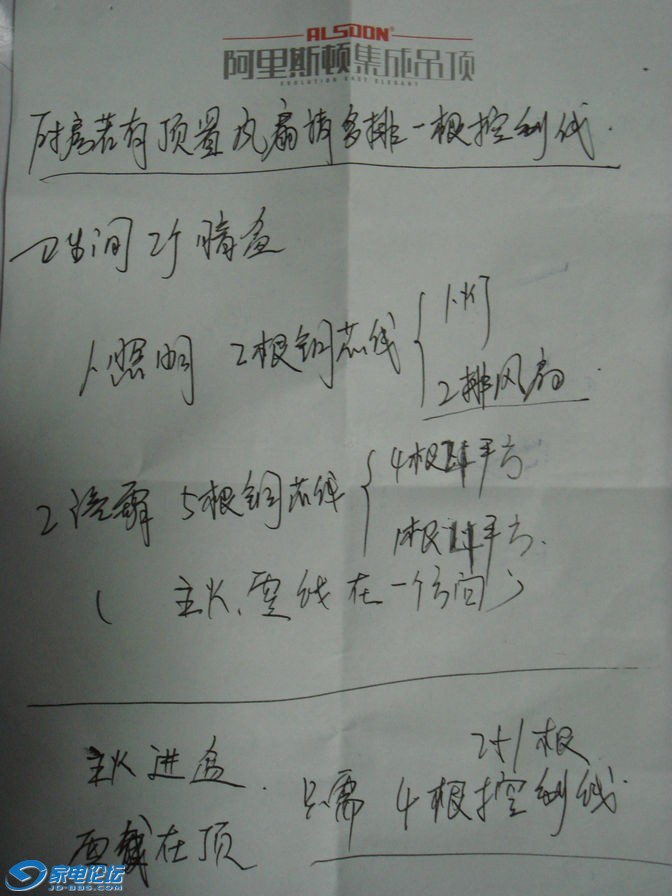 ALSDON
阿里斯顿集成吊顶
EVOLUTION EASY ELEGANT
厨房若有顶置风扇请多排一根控制线.
卫生间 2个暗盒
1、照明 2根铜芯线
1、灯
2排风扇.
2浴霸 5根铜芯线
4根 平方
1根 平方.
( 主火、零线在一个方向)
主火进盒.
在顶
2+1根
只需 4根控制线
家电论坛
JD-BBS.COM